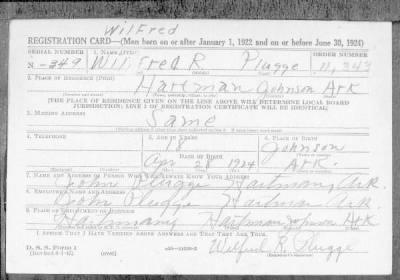 Wilfred
REGISTRATION CARD—(Men born on or after January 1, 1922 and on or before June 30, 1924)
SERIAL NUMBER 1. NAME (Print) ORDER NUMBER
N-349 Wilfred R Plugge 11,343
2. PLACE OF RESIDENCE (Print)
Hartman Johnson Ark
[THE PLACE OF RESIDENCE GIVEN ON THE LINE ABOVE WILL DETERMINE LOCAL BOARD
JURISDICTION; LINE 2 OF REGISTRATION CERTIFICATE WILL BE IDENTICAL]
3. MAILING ADDRESS
Same
4. TELEPHONE 5. AGE IN YEARS 6. PLACE OF BIRTH
18 Johnson
DATE OF BIRTH
Apr 28 1924 Ark.
7. NAME AND ADDRESS OF PERSON WHO WILL ALWAYS KNOW YOUR ADDRESS
John Plugge Hartman, Ark.
8. EMPLOYER'S NAME AND ADDRESS
John Plugge Hartman Ark
9. PLACE OF EMPLOYMENT OR BUSINESS
Hartman Johnson Ark
I AFFIRM THAT I HAVE VERIFIED ABOVE ANSWERS AND THAT THEY ARE TRUE.
D. S. S. Form 1
(over) Wilfred R. Plugge